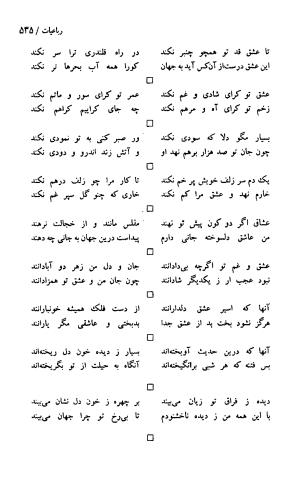 رباعیات / ۵۳۵
تا عشق قد تو همچو چنبر نکند در راه قلندری ترا سر نکند
این عشق درست‌از آن‌کس آید به جهان کورا همه آب بحرها تر نکند
□
عشق تو کرای شادی و غم نکند عمر تو کرای سور و ماتم نکند
زخم تو کرای آه و مرهم نکند چه جای کراییم کراهم نکند
□
بسیار مگو دلا که سودی نکند ور صبر کنی به تو نمودی نکند
چون جان تو صد هزار برهم نهد او و آتش زند اندرو و دودی نکند
□
یک دم سر زلف خویش پر خم نکند تا کار مرا چو زلف درهم نکند
خارم نهد و عشق مرا کم نکند خاری که چنو گل سپر غم نکند
□
عشاق اگر دو کون پیش تو نهند مفلس مانند و از خجالت نرهند
من عاشق دلسوخته جانی دارم پیداست درین جهان به جانی چه دهند
□
عشق و غم تو اگرچه بی‌دادانند جان و دل من زهر دو آبادانند
نبود عجب ار ز یکدیگر شادانند چون جان من و عشق تو همزادانند
□
آنها که اسیر عشق دلدارانند از دست فلک همیشه خونبارانند
هرگز نشود بخت بد از عشق جدا بدبختی و عاشقی مگر یارانند
□
آنها که درین حدیث آویخته‌اند بسیار ز دیده خون دل ریخته‌اند
بس فتنه که هر شبی برانگیخته‌اند آنگاه به حیلت از تو بگریخته‌اند
□
دیده ز فراق تو زیان می‌بیند بر چهره ز خون دل نشان می‌بیند
با این همه من ز دیده ناخشنودم تا بی‌رخ تو چرا جهان می‌بیند
□